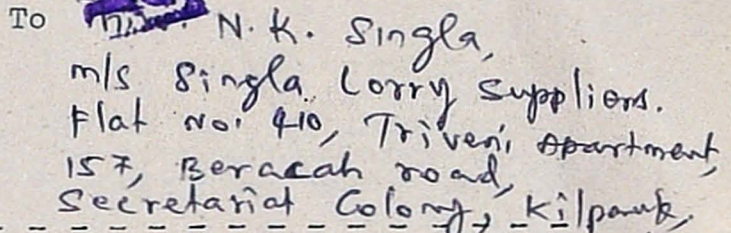 To N.K. Singla,
M/s Singla Lorry Suppliers.
Flat No: 410, Triveni Apartment,
157, Beracah road,
Secretariat Colony, Kilpauk,